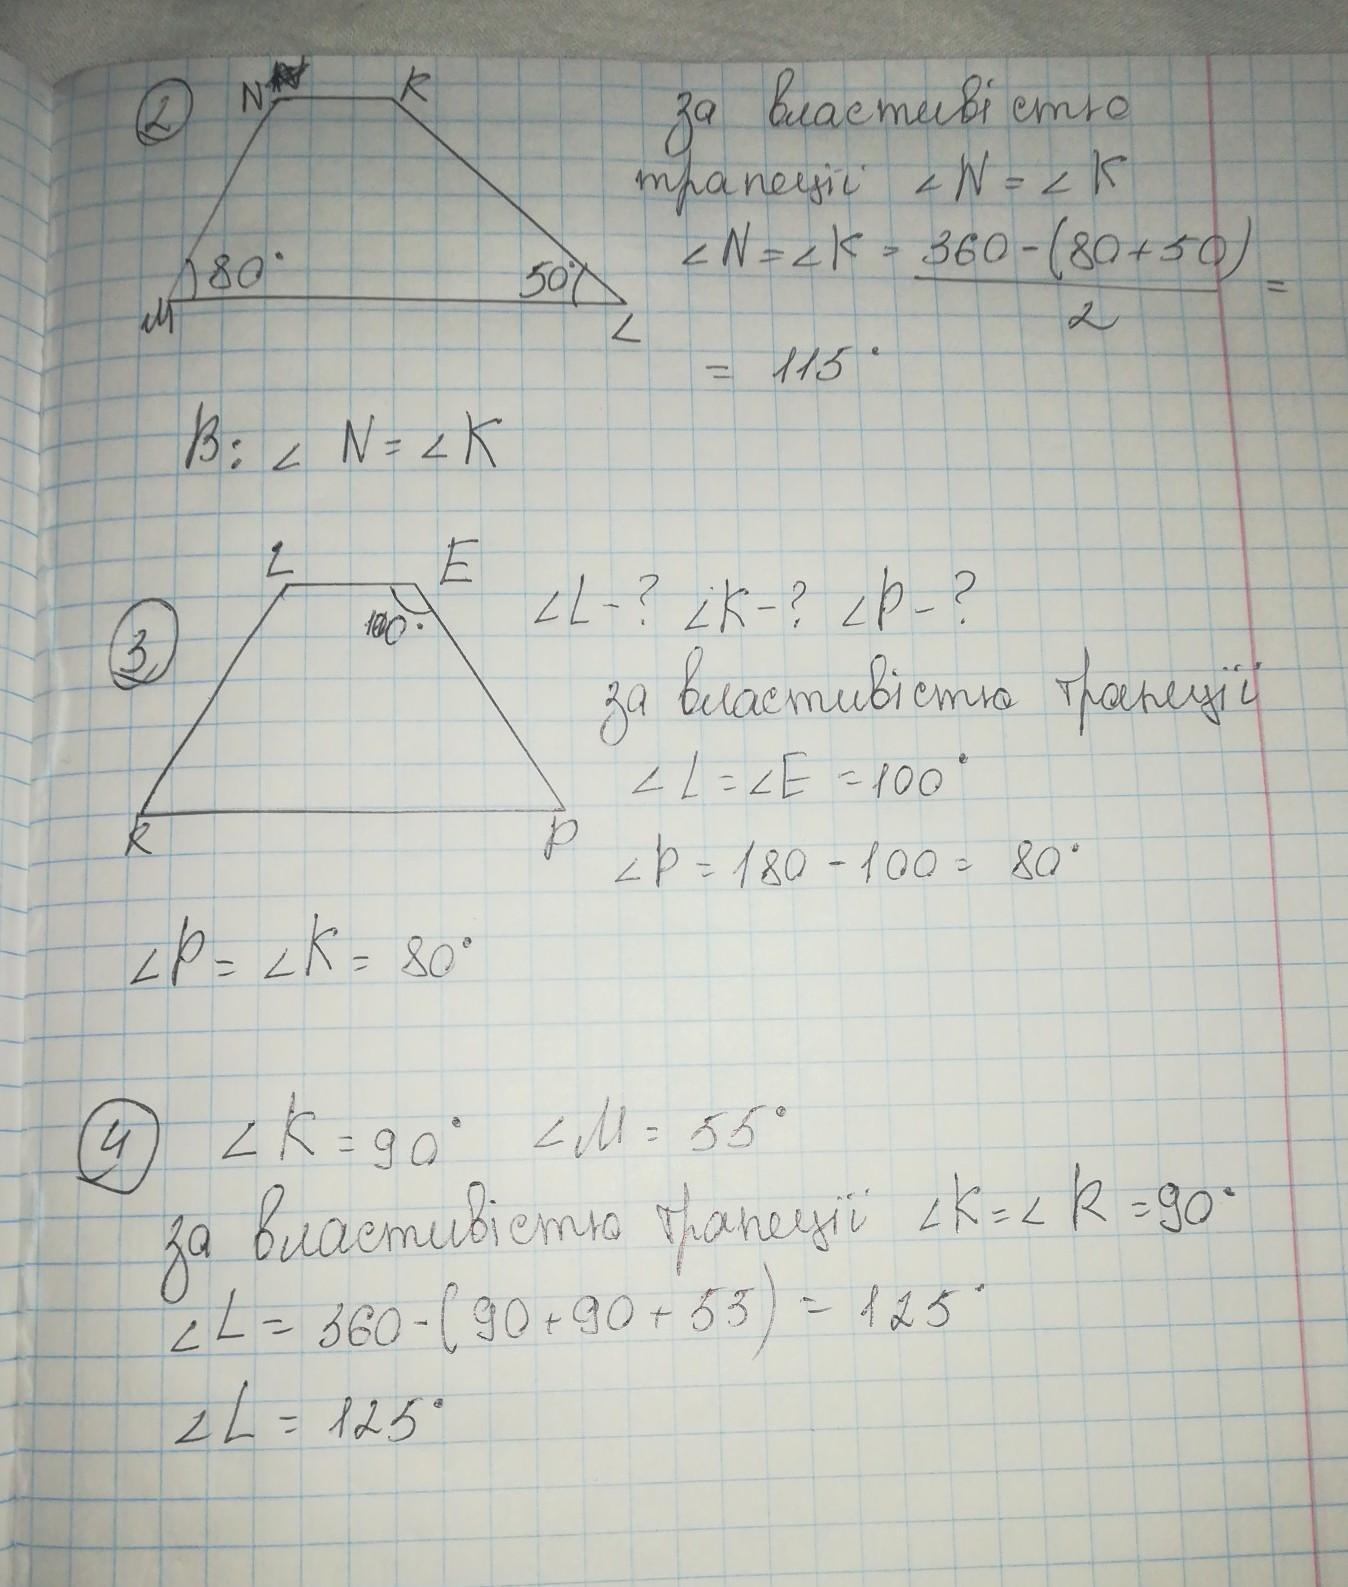 2 N K за властивістю
трапеції ∠N = ∠K
80° 50° ∠N = ∠K = 360-(80+50) =
M L 2
= 115°
В: ∠ N = ∠K
L E
3 100° ∠L-? ∠K-? ∠P-?
за властивістю трапеції
∠L = ∠E = 100°
K P ∠P = 180 - 100 = 80°
∠P = ∠K = 80°
4 ∠K = 90° ∠M = 55°
за властивістю трапеції ∠K = ∠R = 90°
∠L = 360-(90+90+55) = 125°
∠L = 125°